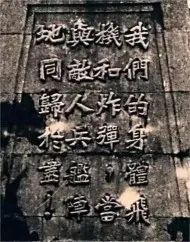 我們的身體飛
機和炸彈,當
與敵人兵艦陣
地同歸於盡!